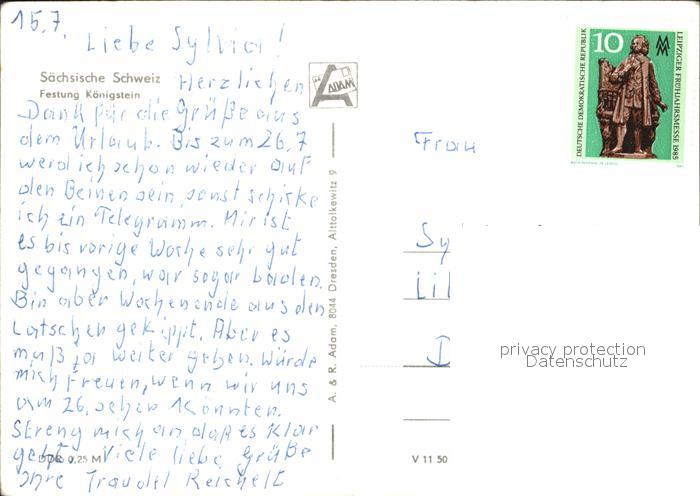 15.7.
Liebe Sylvia!
Sächsische Schweiz
Festung Königstein
Herzlichen
Dank für die Grüße aus
dem Urlaub. Bis zum 26.7
werd ich schon wieder auf
den Beinen sein, sonst schicke
ich ein Telegramm. Mir ist
es bis vorige Woche sehr gut
gegangen, war sogar baden.
Bin aber Wochenende aus den
Latschen gekippt. Aber es
muß ja weiter gehen. Würde
mich freuen, wenn wir uns
am 26. sehen könnten.
Streng mich an daß es klar
geht. Viele liebe Grüße
Ihre Traudel Reichelt
DDR 0,25 M
V 11 50
A. & R. Adam, 8044 Dresden, Alttolkewitz 9
ADAM
10
DEUTSCHE DEMOKRATISCHE REPUBLIK
LEIPZIGER FRÜHJAHRSMESSE 1985
MM
Frau
Sy
Lil
privacy protection
Datenschutz